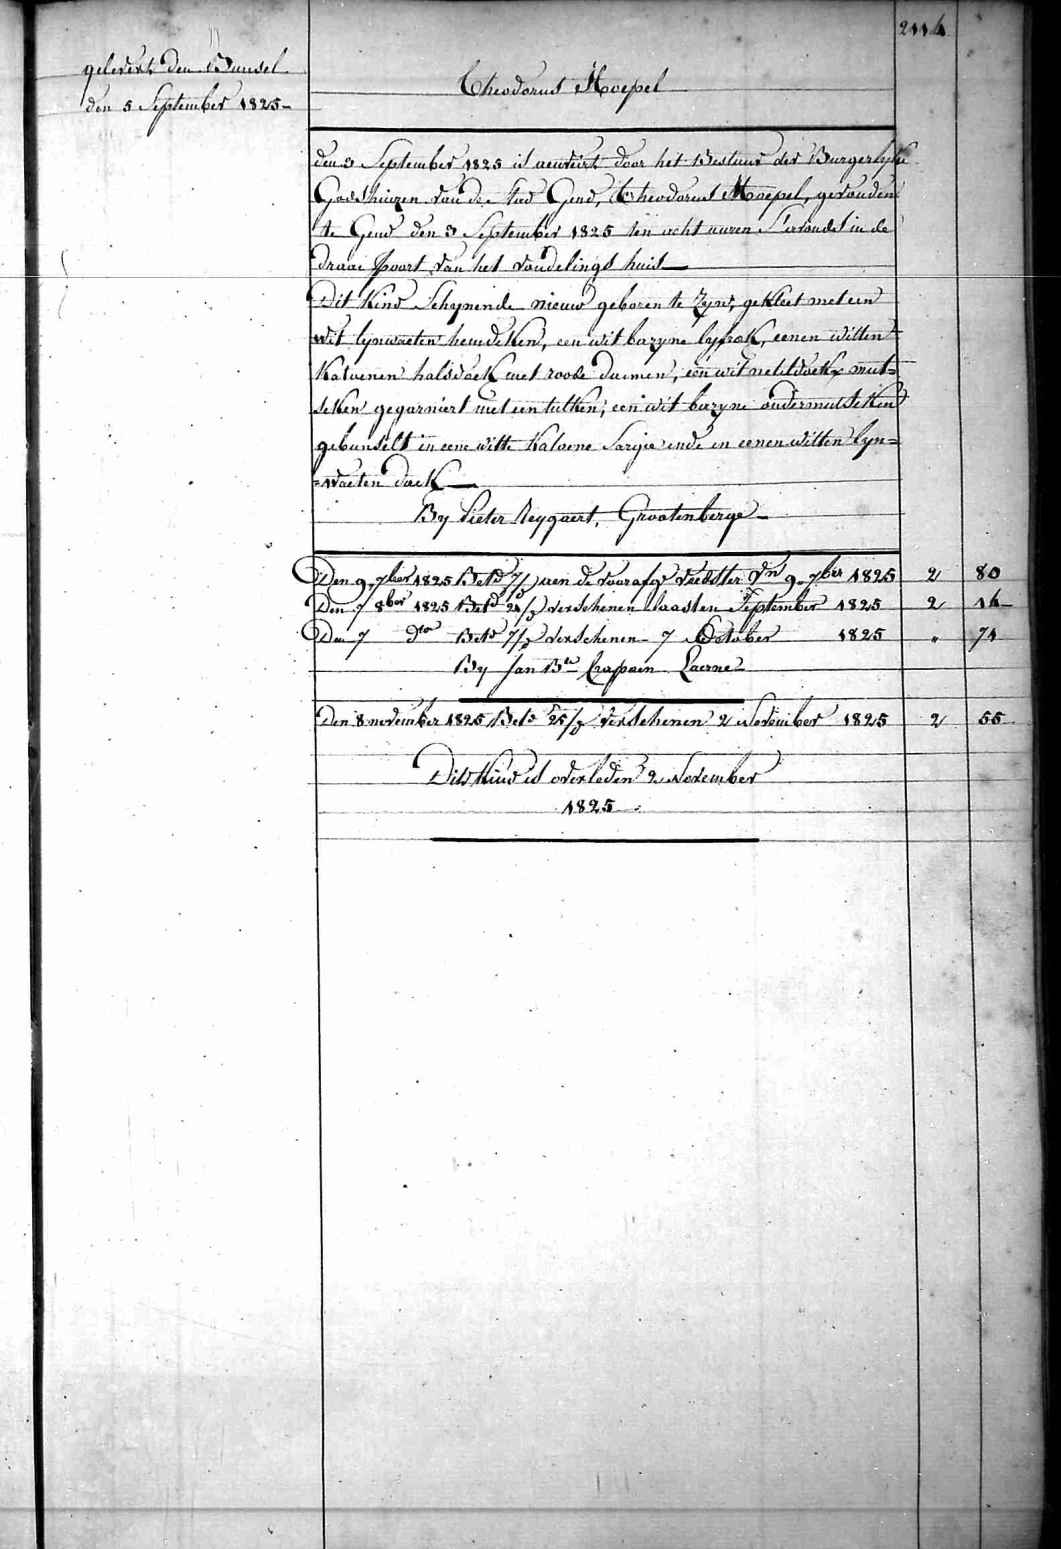 2114
gelevert den Bunsel
den 5 September 1825-
Theodorus Hoepel
den 3 September 1825 is aenveirt door het Bestuur der Burgerlyke
Godshuizen van de stad Gend, Theodorus Hoepel, gevonden
te Gend den 3 September 1825 ten acht uuren S'avonds in de
draai Poort van het vondelings huis
Dit Kind Schynende nieuw geboren te Zyn, gekleet met een
wit lynwaeten hemdeken, een wit bazyne lyfrok, eenen witten
Katoenen halsdoek met roode , een wit neteldoekx mut=
seken gegarniert met een tulken, een wit bazyne ondermutseken
gebunselt in eene witte Katoene Sargie ende in eenen witten lyn=
=waeten doek
By Pieter Reygaert, Grootenberge
Den 9 7ber 1825 Bet.d aen de voorafg 9 7ber 1825 2 80
Den 7 8ber 1825 Bet.d verschenen laasten September 1825 2 14
Den 7 d.to Bet.d verschenen 7 October 1825 " 74
By Jan B.te Crapoen Laerne
Den 8 november 1825 Bet.d verschenen 2 November 1825 2 55
Dits Kind is overleden 2 November
1825